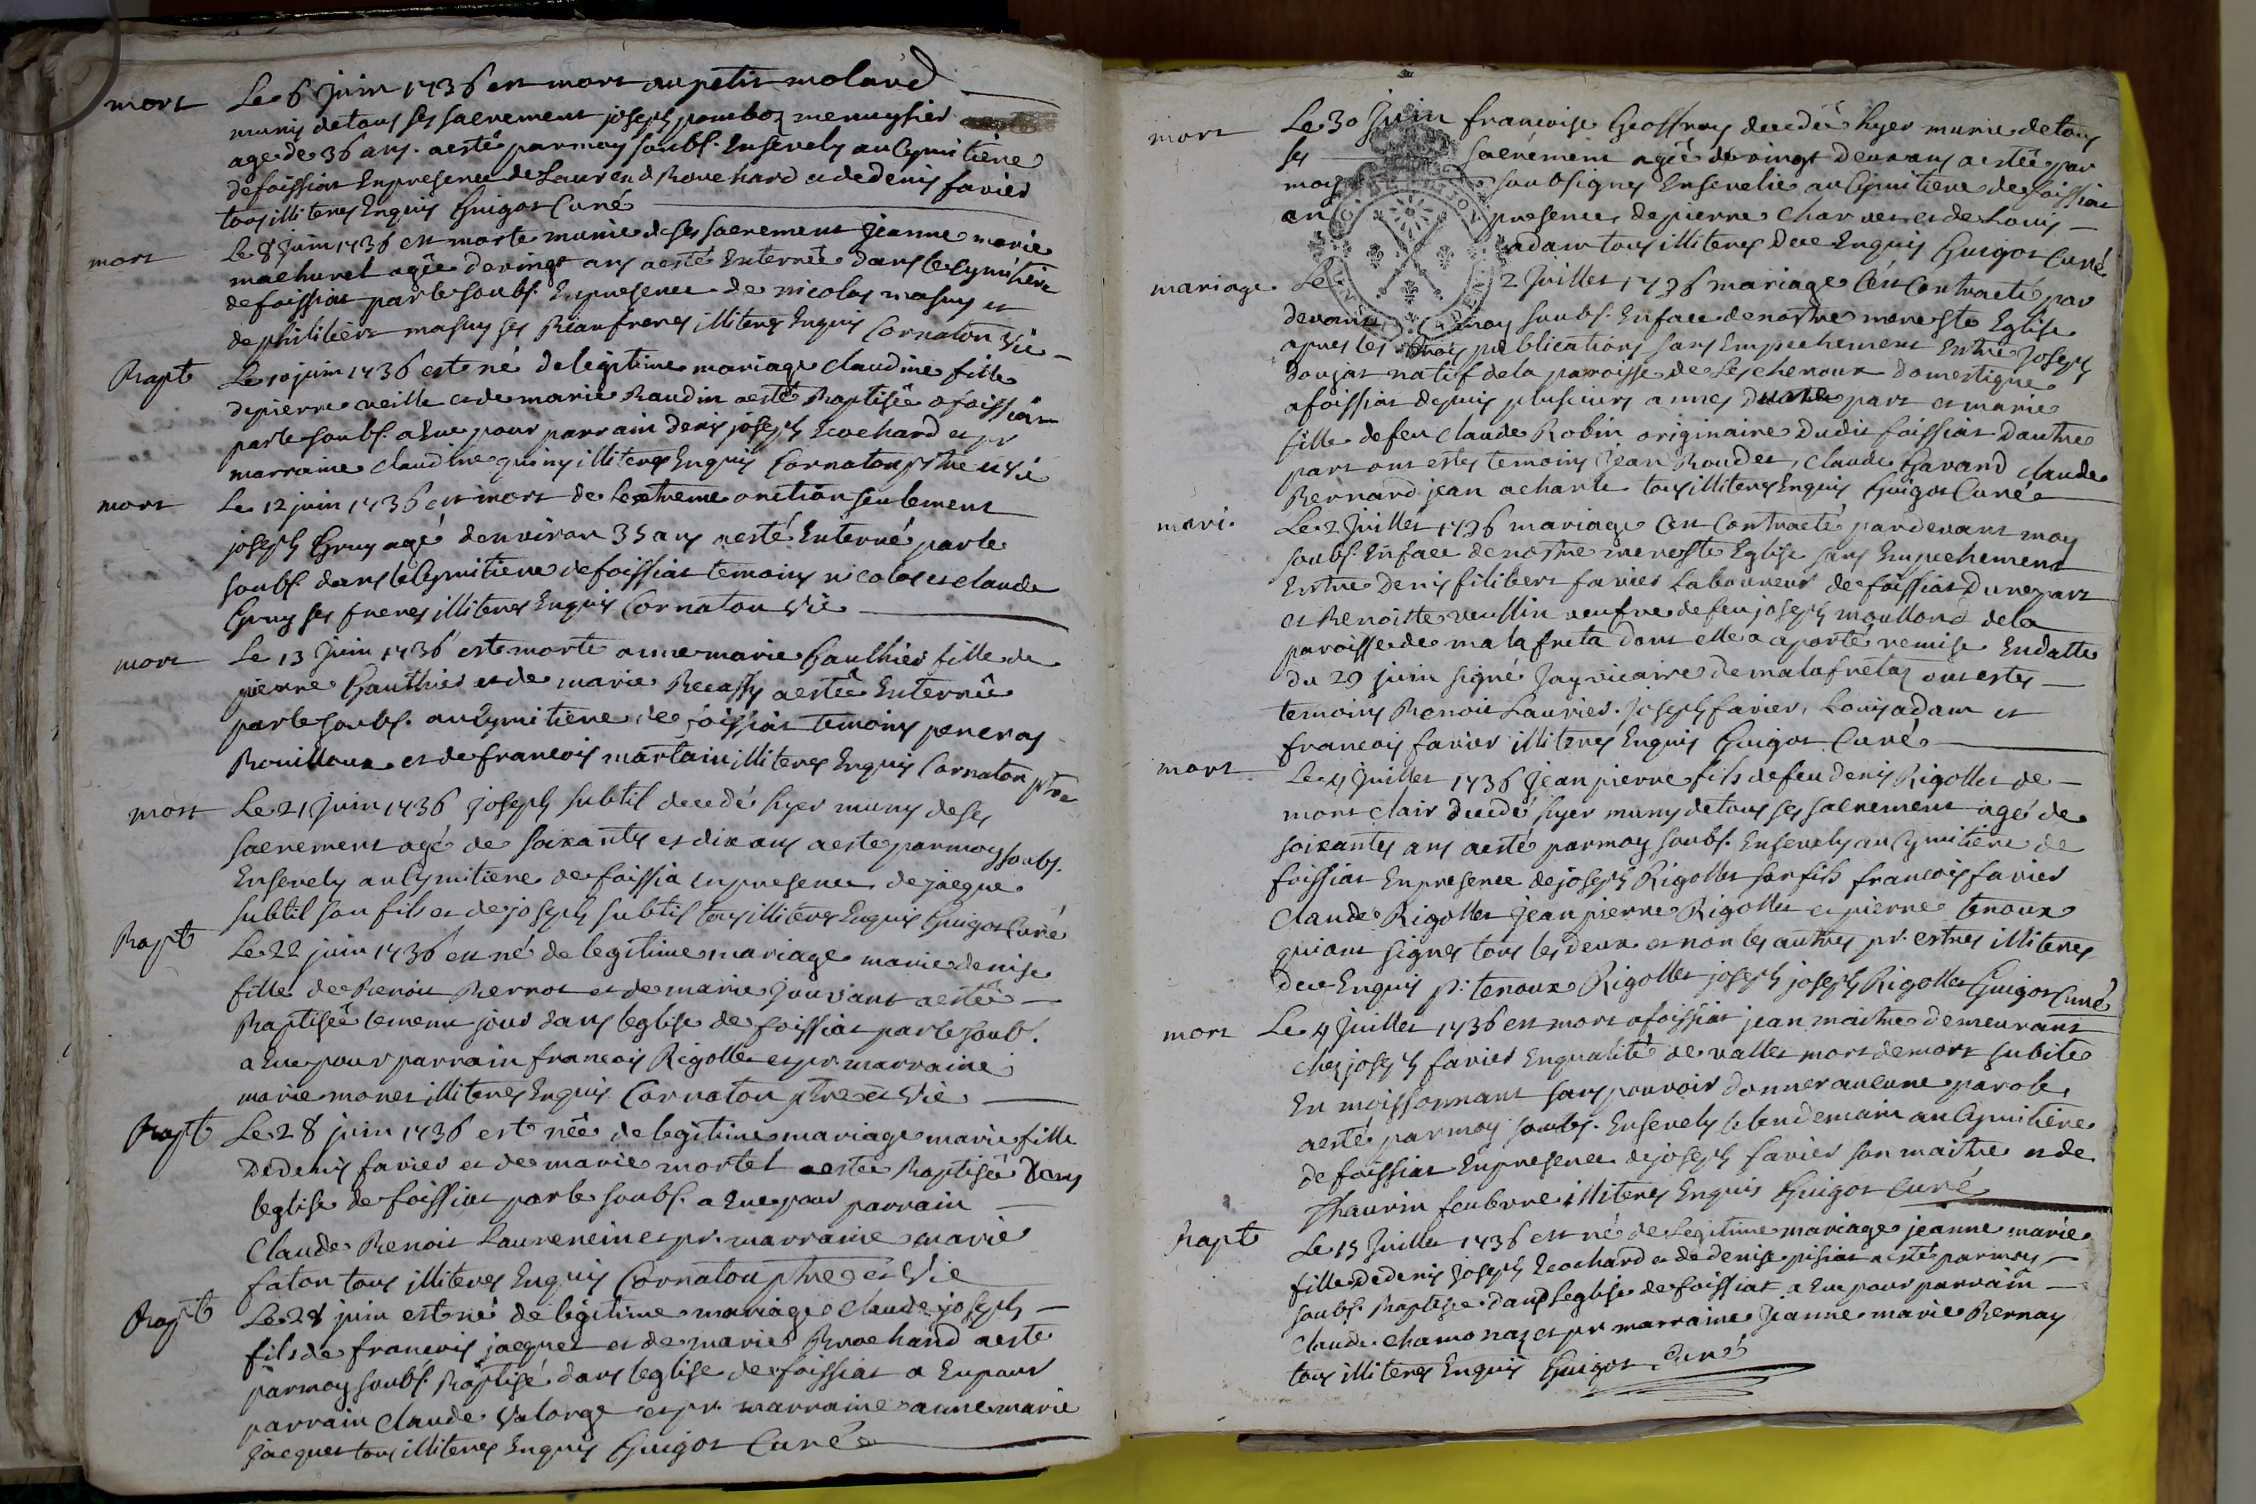 mort Le 6 juin 1736 est mort au petit molard
munis de tous ses sacrement joseph pomboz menuysier
age de 36 ans. a esté par moy soubs. Ensevely au Cymitiere
de foissiat En presence de Laurend Rouchard et de denis favier
tous illiteres Enquis Guigot Curé
mort Le 8 juin 1736 est morte munie de ses sacrement Jeanne marie
machurel agée de vingt ans a esté Enterrée dans le Cymitiere
de foissiat par le soubs. En presence de nicolas masuy et
de philibert masuy ses Beaufreres illiteres Enquis Cornaton Vic
Bapt Le 10 juin 1736 est né de legitime mariage Claudine fille
de pierre veille et de marie Baudin a esté Baptisée a foissiat
par le soubs. a Eue pour parrain denis joseph Ecochard et pr
marraine Claudine quiny illiteres Enquis Cornaton ptre et Vic
mort Le 12 juin 1736 est mort de Lextreme onction seulement
joseph Gruy agé denviron 35 ans a esté Enterré par le
soubs. dans le Cymitiere de foissiat temoins nicolas et claude
Gruy ses freres illiteres Enquis Cornaton Vic
mort Le 13 Juin 1736 est morte anne marie Gaulthier fille de
pierre Gauthier et de marie Recassy a estée Enterrée
par le soubs. au Cymitiere de foissiat temoins
Bouilloux et de francois martain illiteres Enquis Cornaton ptre
mort Le 21 juin 1736 joseph subtil decedé hyer muny de ses
sacrement agé de soixantes et dix ans a este par moy soubs.
Ensevely au Cymitiere de foissia en presence de jacque
subtil son fils et de joseph subtil tous illiteres Enquis Guigot Curé
Bapt Le 22 juin 1736 est né de legitime mariage marie denise
fille de Benoit Bernot et de marie Jouvant a estée
Baptisée le meme jour dans leglise de foissiat par le soub.
a Eue pour parrain francois Rigollet et pr marraine
marie monet illiteres Enquis Cornaton ptre et Vic
Bapt Le 28 juin 1736 est née de legitime mariage marie fille
De denis favier et de marie mortel a estée Baptisée Dans
leglise de foissiat par le soubs. a Eue pour parrain
Claude Benoit Laurencin et pr. marraine marie
faton tous illiteres Enquis Cornaton ptre et Vic
Bapt Le 28 juin est né de legitime mariage Claude joseph
fils de francois jacquet et de marie Brochand a este
par moy soubs. Baptisé dans leglise de foissiat a Eu pour
parrain Claude Valorge et pr. marraine anne marie
jacquet tous illiteres Enquis Guigot Curé
mort Le 30 Juin francoise Geoffray decedée hyer munie de tous
ses sacrément agée de vingt deux ans a estée par
moy soubsignes Ensevelie au Cymitiere de foissiat
en presence de pierre Charvet et de Louis
adam tous illiteres De ce Enquis Guigot Curé
mariage Le 2 Juillet 1736 mariage Cest Contracté par
devant moy soubs. En face de nostre mere ste Eglise
apres les trois publications sans Empechement Entre Joseph
Dougat natif de la paroisse de Lescheroux Domestique
a foissiat depuis plusieurs annes Dune part et marie
fille de feu Claude Robin originaire Dudit foissiat Dautre
part ont estes temoins Jean Boudet, Claude Gavand Claude
Bernard jean acharle tous illiteres Enquis Guigot Curé
mari. Le 2 Juillet 1736 mariage Cest Contracté pardevant moy
soubs. En face de nostre mere ste Eglise sans Empechement
Entre Denis filibert favier Laboureur de foissiat Dune part
et Benoitte veullin veufve de feu joseph moullond de la
paroisse de malafreta dont elle a aporté remise En datte
du 29 juin signé Jay vicaire de malafretaz ont estes
temoins Benoit Laurier. Joseph favier, Louis adam et
francois favier illiteres Enquis Guigot Curé
mort Le 4 Juillet 1736 Jean pierre fils de feu denis Rigollet de
mont Clair decedé hyer muny de tous ses sacrement agé de
soixantes ans a esté par moy soubs. Ensevely au Cymitiere de
foissiat En presence de joseph Rigollet son fils francois favier
Claude Rigollet jean pierre Rigollet et pierre tenoux
qui ont signes tous les deux et non les autres pr. estres illiteres
de ce Enquis p. tenoux Rigollet joseph joseph Rigollet Guigot Curé
mort Le 4 Juillet 1736 est mort a foissiat jean maitre demeurant
chez joseph favier En qualité de vallet mort de mort subite
En moissonnant sans pouvoir donner aucune parole,
a esté par moy soubs. Ensevely le lendemain au Cymitiere
de foissiat En presence de joseph favier son maitre et de
Thaurin feuberre illiteres Enquis Guigot Curé
Bapt Le 15 Juillet 1736 est né de Legitime mariage jeanne marie
fille de denis Joseph Ecochard et de denise pisiat a esté par moy
soubs. Baptisée dans leglise de foissiat a Eue pour parrain
Claude Chamonaz et pr marraine Jeanne marie Bernay
tous illiteres Enquis Guigot Curé